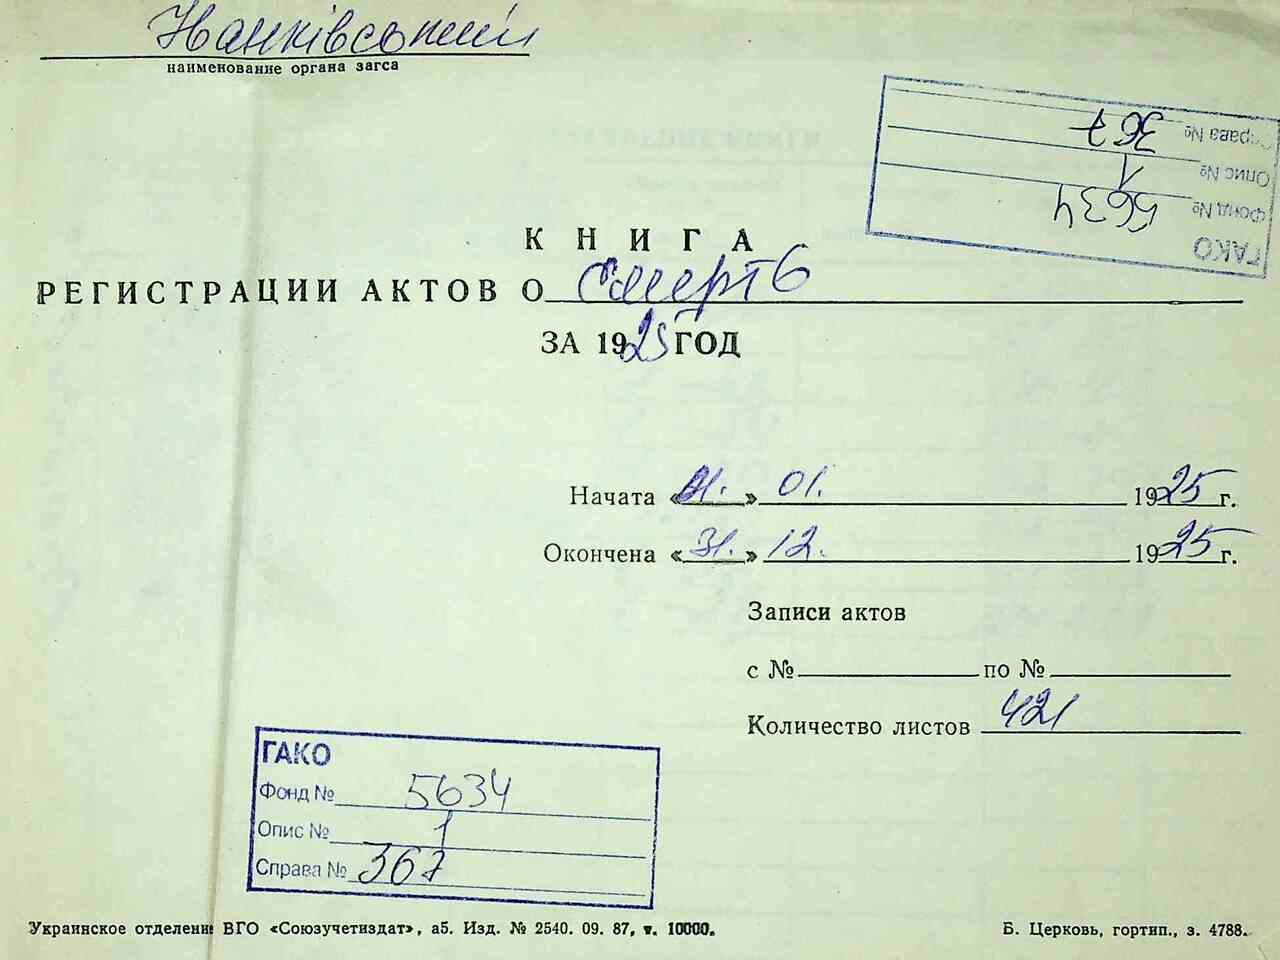 Нанківський
наименование органа загса
ГАКО
Фонд № 5634
Опис № 1
Справа № 367
КНИГА
РЕГИСТРАЦИИ АКТОВ О смерть
ЗА 1925 ГОД
Начата «01.» 01. 1925 г.
Окончена «31.» 12. 1925 г.
Записи актов
с № по №
Количество листов 421
ГАКО
Фонд № 5634
Опис № 1
Справа № 367
Украинское отделени ВГО «Союзучетиздат», а5. Изд. № 2540. 09. 87, т. 10000.
Б. Церковь, гортип., з. 4788.